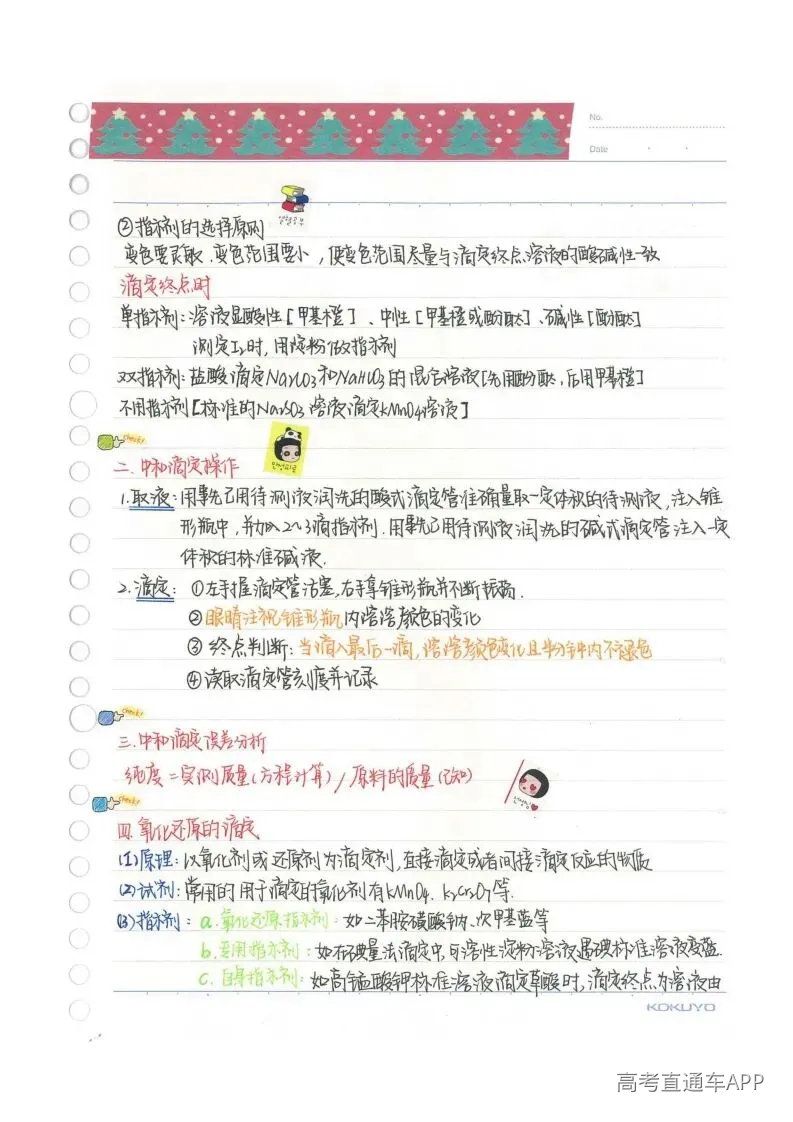 No.
Date
②指示剂的选择原则
变色要灵敏,变色范围要小,使变色范围尽量与滴定终点溶液的酸碱性一致
滴定终点时
单指示剂:溶液显酸性[甲基橙]、中性[甲基橙或酚酞]、碱性[酚酞]
测定I₂时,用淀粉做指示剂
双指示剂:盐酸滴定Na₂CO₃和NaHCO₃的混合溶液[先用酚酞,后用甲基橙]
不用指示剂[标准的Na₂SO₃溶液滴定KMnO₄溶液]
check!
二.中和滴定操作
1.取液:用事先已用待测液润洗的酸式滴定管准确量取一定体积的待测液,注入锥
形瓶中,并加入2~3滴指示剂.用事先已用待测液润洗的碱式滴定管注入一定
体积的标准碱液.
2.滴定:①左手握滴定管活塞,右手拿锥形瓶并不断振荡.
②眼睛注视锥形瓶内溶液颜色的变化
③终点判断:当滴入最后一滴,溶液颜色变化且半分钟内不褪色
④读取滴定管刻度并记录
check!
三.中和滴定误差分析
纯度=实测质量(方程计算)/原料的质量(已知)
check!
四.氧化还原的滴定
(1)原理:以氧化剂或还原剂为滴定剂,直接滴定或者间接滴定反应的物质
(2)试剂:常用的用于滴定的氧化剂有KMnO₄、K₂Cr₂O₇等.
(3)指示剂:a.氧化还原指示剂:如二苯胺磺酸钠、次甲基蓝等
b.专用指示剂:如在碘量法滴定中,可溶性淀粉溶液遇碘标准溶液变蓝.
c.自身指示剂:如高锰酸钾标准溶液滴定草酸时,滴定终点为溶液由
KOKUYO
高考直通车APP